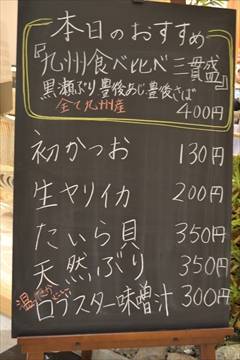 本日のおすすめ
『九州食べ比べ三貫盛』
黒瀬ぶり豊後あじ豊後さば
全て九州産
400円
初かつお 130円
生ヤリイカ 200円
たいら貝 350円
天然ぶり 350円
ロブスター味噌汁 300円